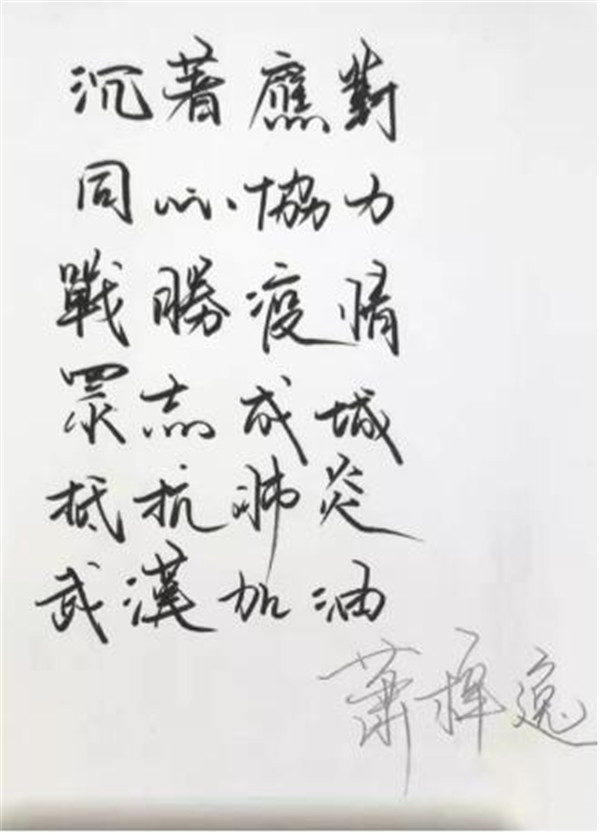 沉著應對
同心協力
戰勝疫情
眾志成城
抵抗肺炎
武漢加油
蕭揮逸